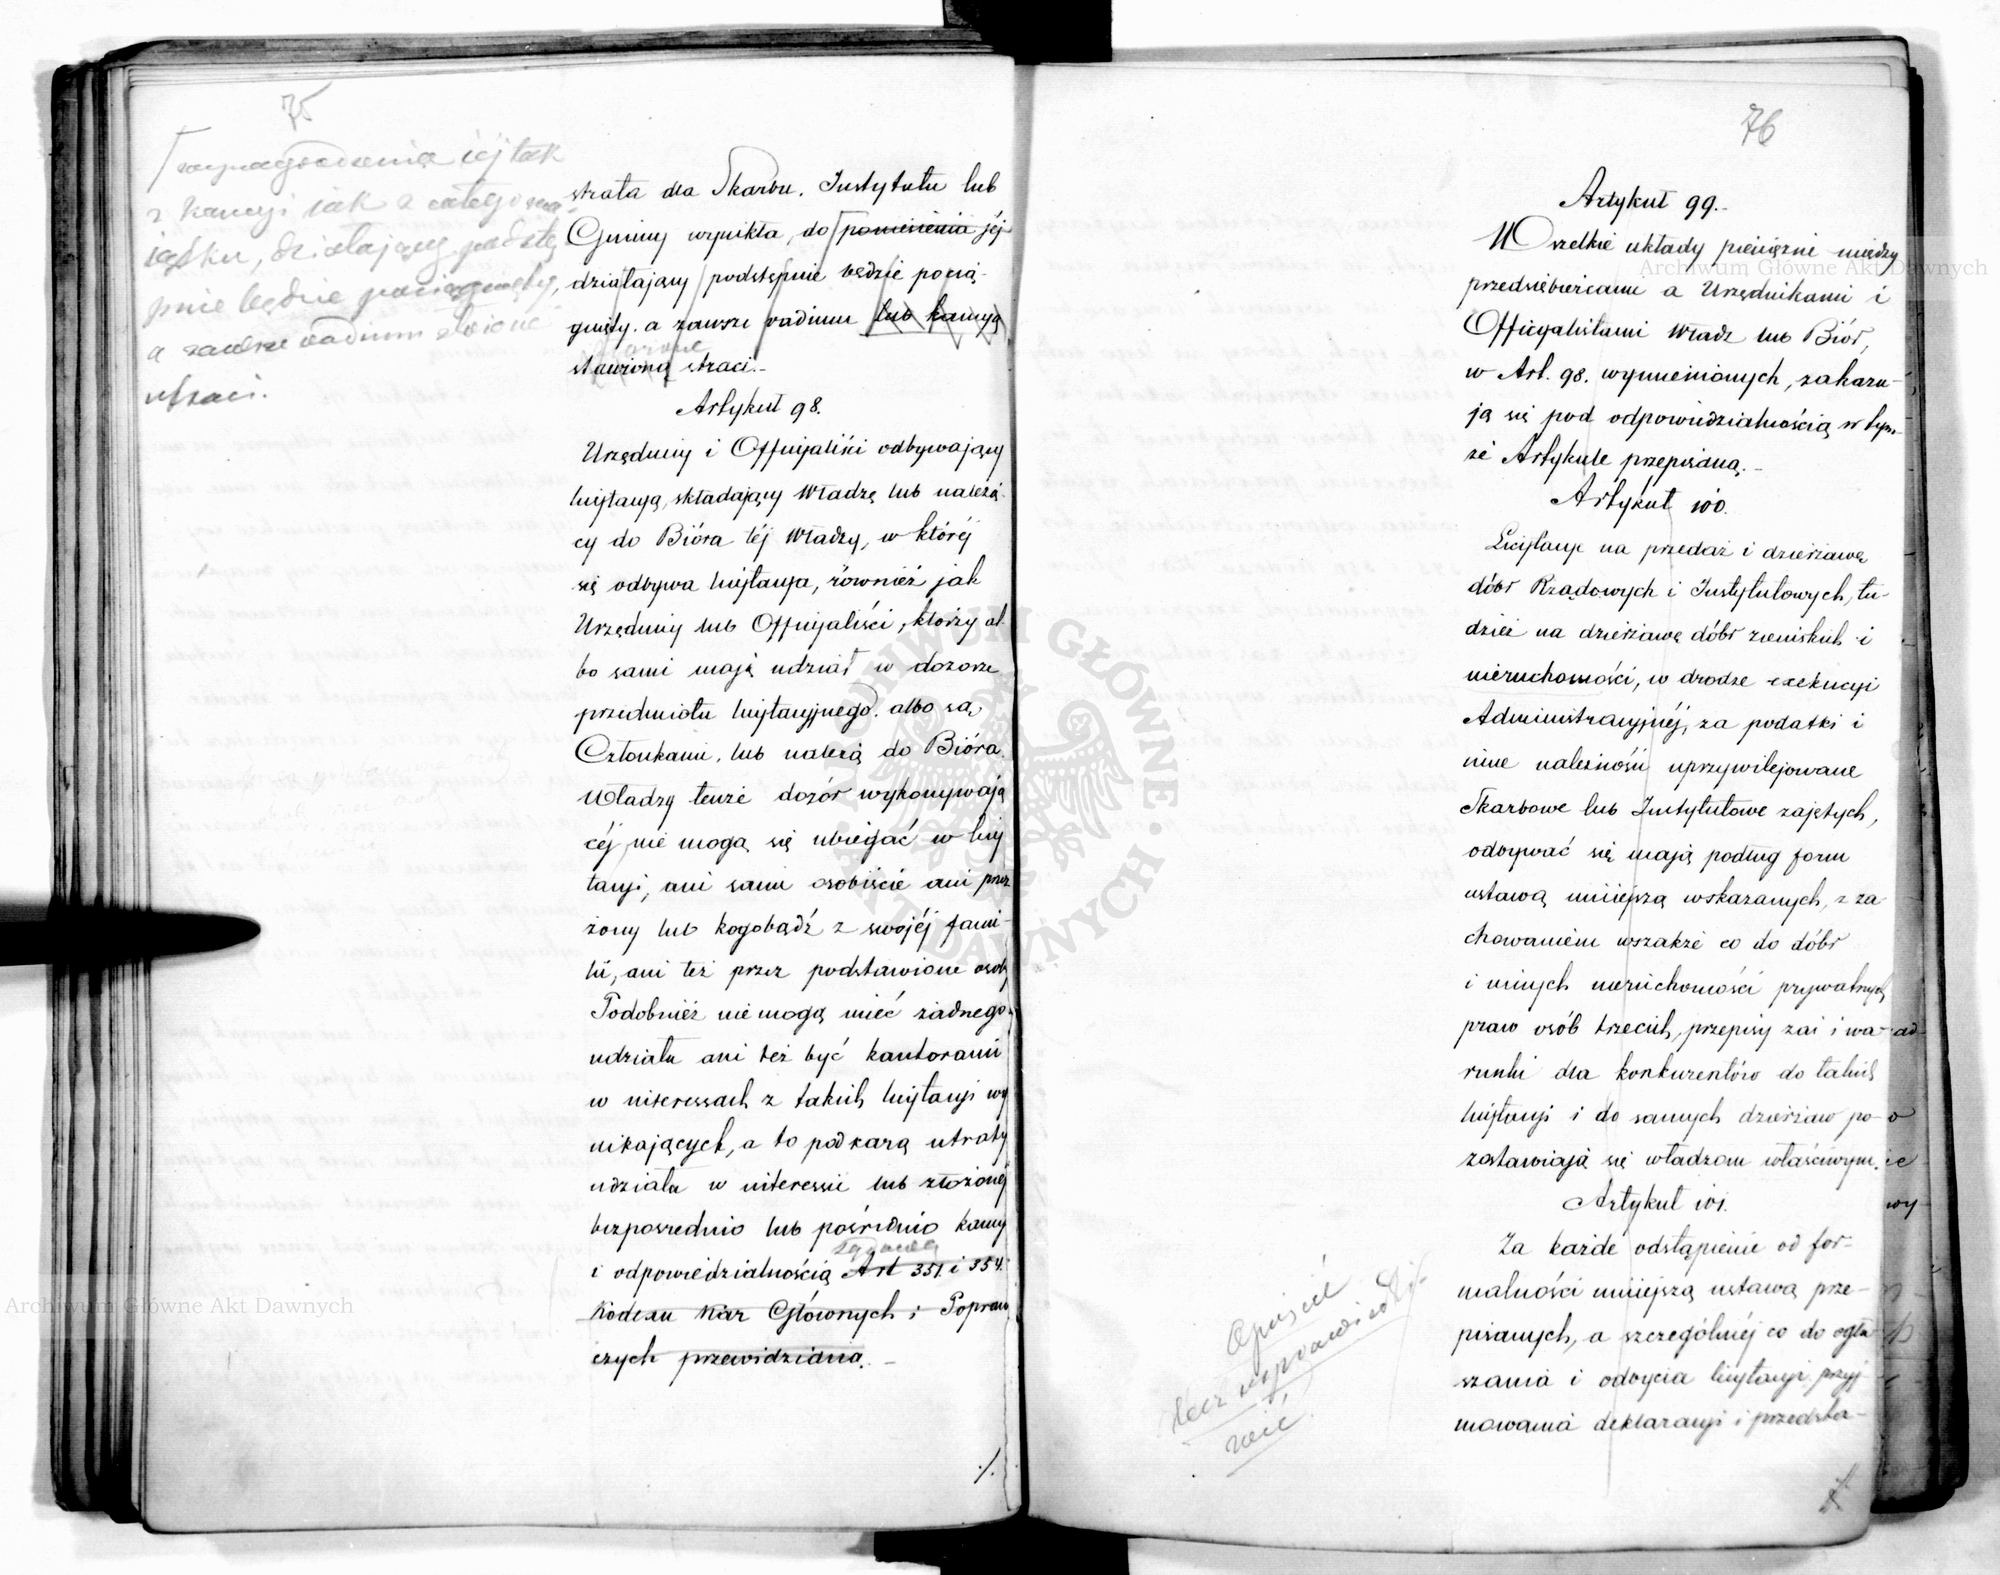 75
wynagrodzenia jéj tak
z kaucyi jak z całego ma-
jątku, działający podstę-
pnie będzie pociągnięty,
a zawsze vadium złożone
utraci.
strata dla Skarbu, Instytutu lub
Gminy wynikła, do poniesienia jéj
działający podstępnie będzie pocią-
gnięty, a zawsze vadium lub kaucyą
złożone
stawioną straci.-
Artykuł 98.
Urzędnicy i Officjaliści odbywający
licytacyą, składający Władzę lub należą-
cy do Bióra téj Władzy, w któréj
się odbywa licytacya, również jak
Urzędnicy lub Officjaliści, którzy al-
bo sami mają udział w dozorze
przedmiotu licytacyjnego, albo są
Członkami, lub należą do Bióra
Władzy tenże dozór wykonywają
céj, nie mogą się ubiegać w licy
tacyi, ani sami osobiście ani przez
żony lub kogobądź z swojéj fami-
lii, ani też przez podstawione osoby
Podobnież nie mogą mieć żadnego
udziału ani też być kantorami
w interessach z takich licytacyi wy
nikających, a to pod karą utraty
udziału w interessie lub złożonéj
bezpośrednio lub pośrednio kaucyi
sądową
i odpowiedzialnością Art 351. i 354.
Kodexu Kar Głównych i Popraw
czych przewidzianą. -
./.
76
Artykuł 99.-
Wszelkie układy pieniężne między
przedsiębiercami a Urzędnikami i
Officyalistami Władz lub Biór,
w Art. 98. wymienionych, zakazu-
ją się pod odpowiedzialnością w tym-
że Artykule przepisaną.-
Artykuł 100.
Licytacye na przedaż i dzierżawę
dóbr Rządowych i Instytutowych, tu-
dzież na dzierżawę dóbr ziemskich i
nieruchomości, w drodze exekucyi
Administracyjnéj, za podatki i
inne należności uprzywilejowane
Skarbowe lub Instytutowe zajętych,
odbywać się mają podług form
ustawą niniejszą wskazanych, z za
chowaniem wszakże co do dóbr
i innych nieruchomości prywatnych
praw osób trzecich, przepisy zaś i wa-
runki dla konkurentów do takich
licytacyi i do samych dzierżaw po-
zostawiają się władzom właściwym.
Artykuł 101.
Za każde odstąpienie od for-
malności niniejszą ustawą prze-
pisanych, a szczególniéj co do ogła
szania i odbycia licytacyi, przyj
mowania deklaracyi i przedsta-
Opuścić
lecz usprawiedli-
wić
./.
Archiwum Główne Akt Dawnych
Archiwum Główne Akt Dawnych
ARCHIWUM GŁÓWNE AKT DAWNYCH